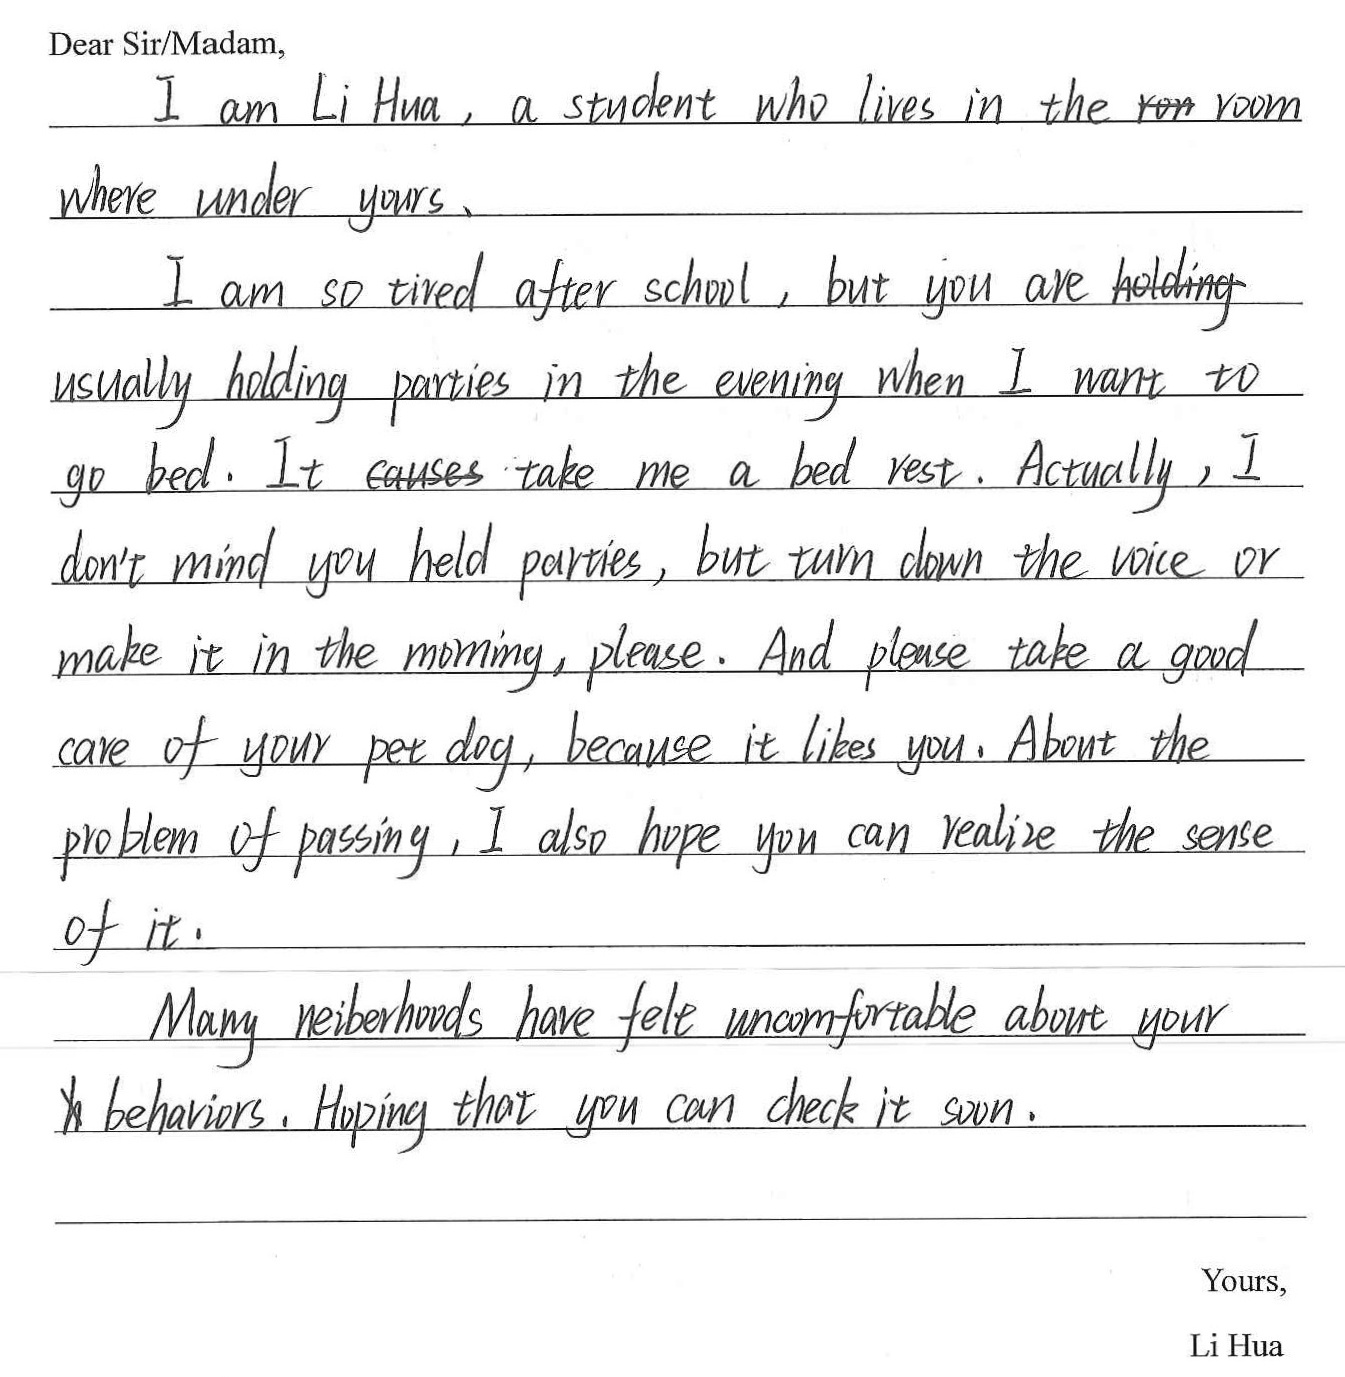 Dear Sir/Madam,
I am Li Hua, a student who lives in the room
where under yours.
I am so tired after school, but you are holding
usually holding parties in the evening when I want to
go bed. It causes take me a bed rest. Actually, I
don't mind you held parties, but turn down the voice or
make it in the morning, please. And please take a good
care of your pet dog, because it likes you. About the
problem of passing, I also hope you can realize the sense
of it.
Many neiberhoods have felt uncomfortable about your
behaviors. Hoping that you can check it soon.
Yours,
Li Hua